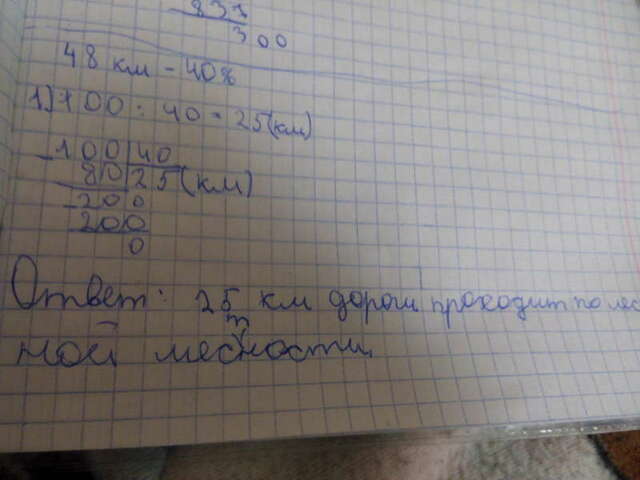 831
300
48 км - 40%
1) 100 : 40 = 25(км)
- 100 40
80 25(км)
- 200
200
0
Ответ: 25 км дороги проходит по лес
ной месности
т